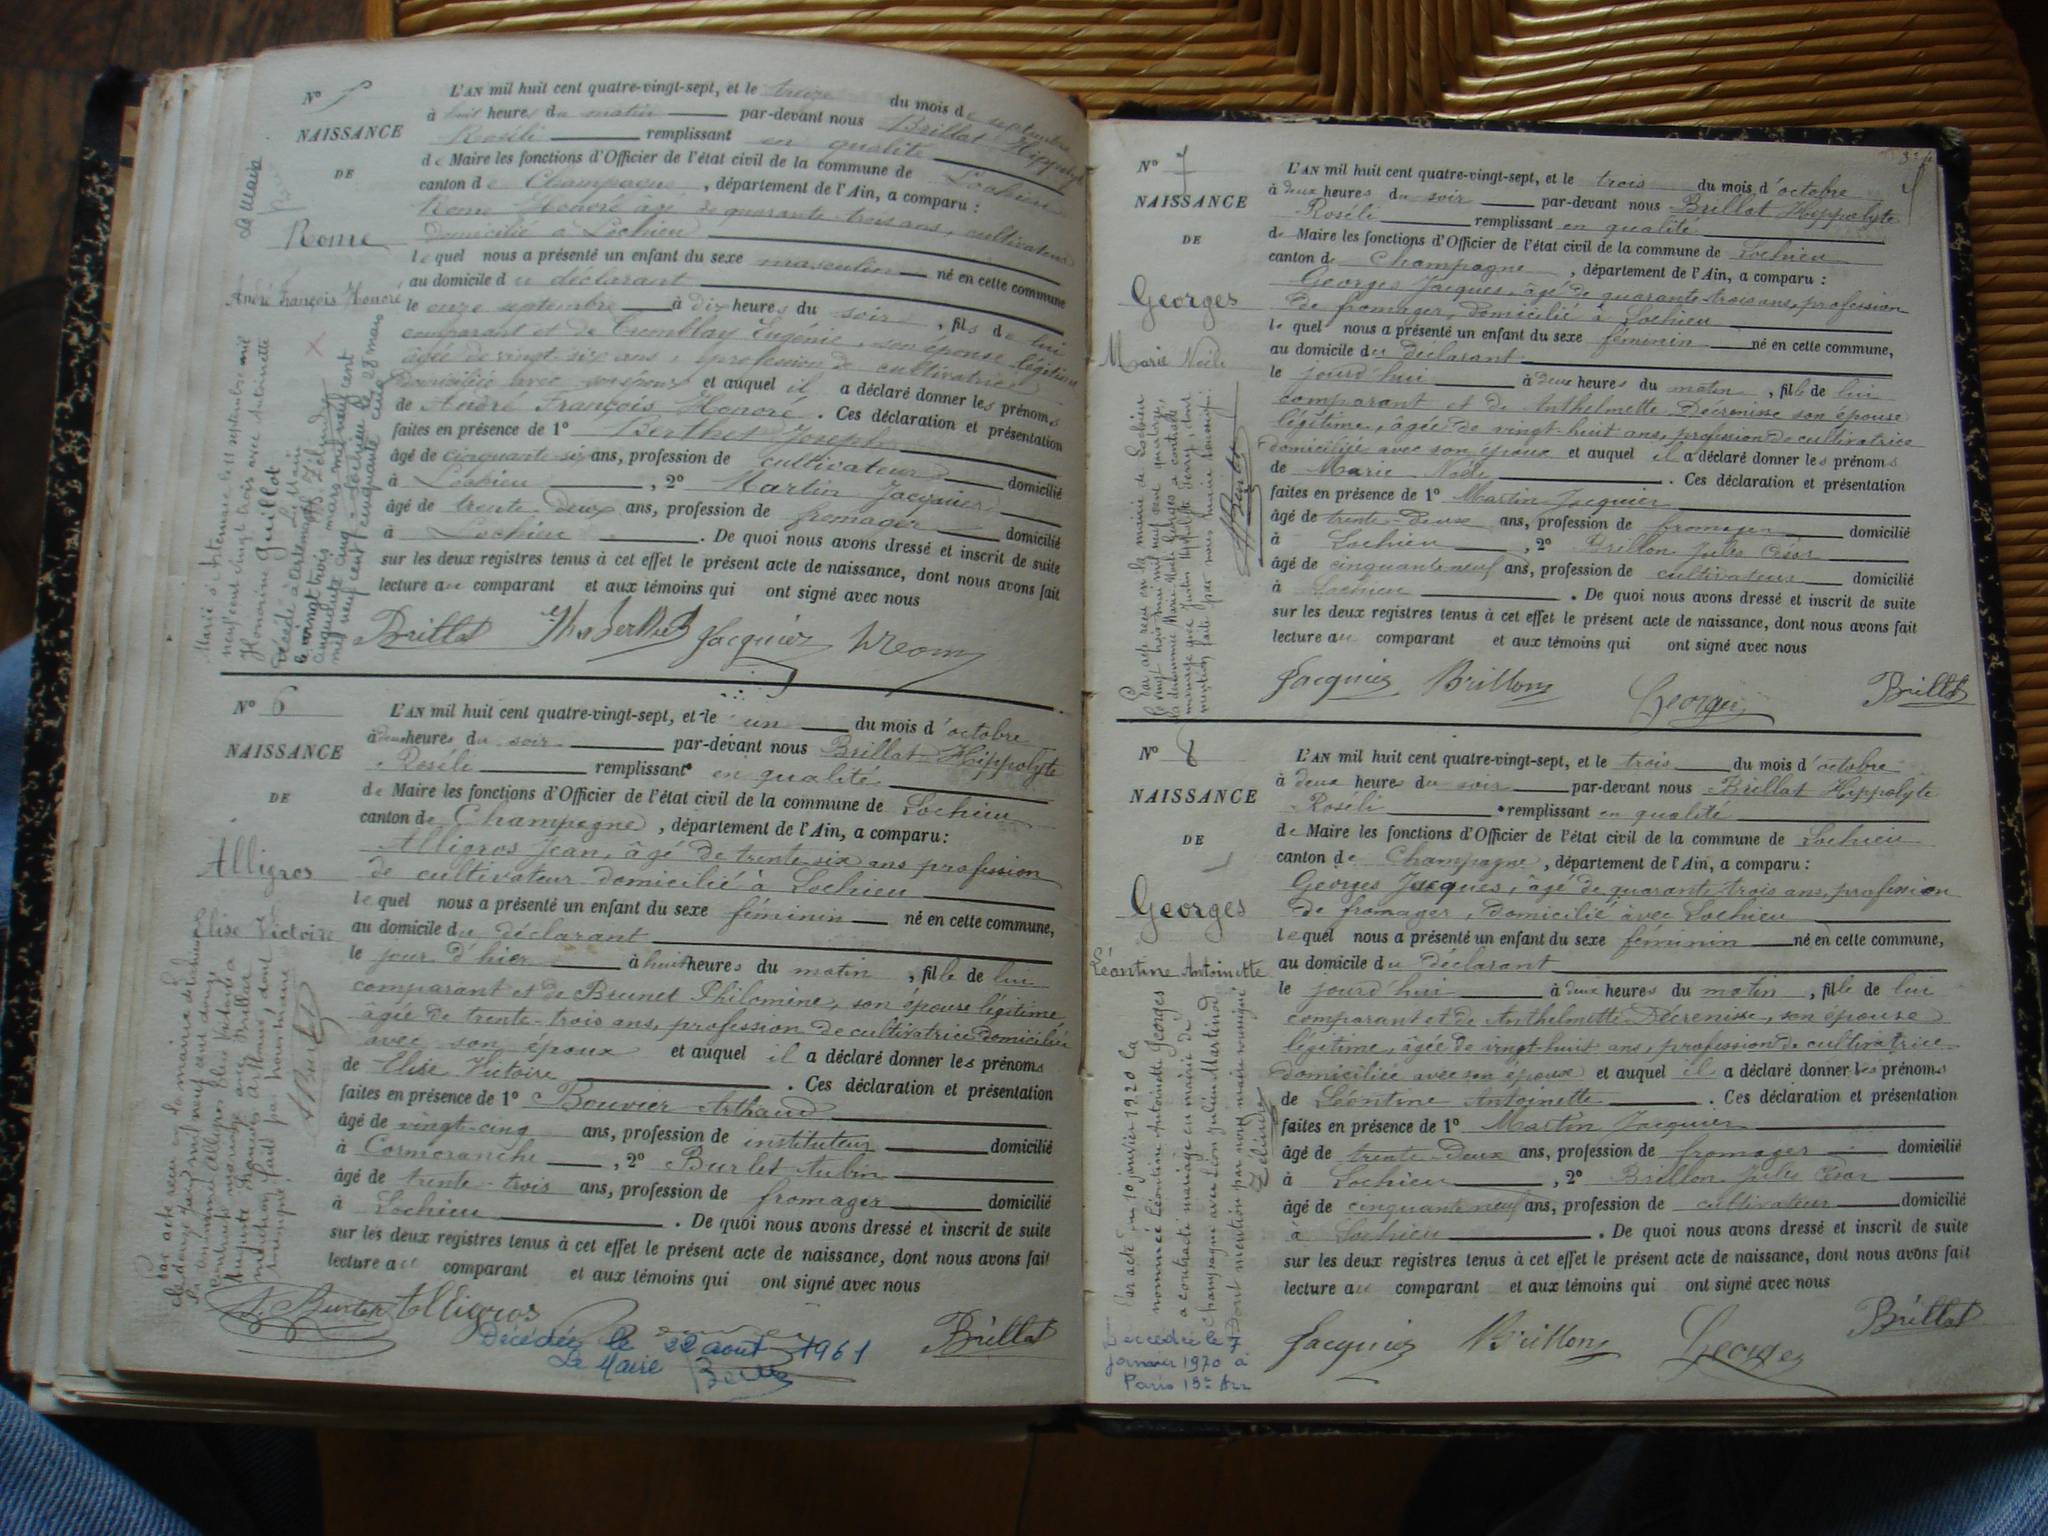 N° 5
NAISSANCE
DE
Rome
André François Honoré
L'AN mil huit cent quatre-vingt-sept, et le treize du mois de septembre
à huit heures du matin par-devant nous Brillat Hippolyte
Roséli remplissant en qualité
de Maire les fonctions d'Officier de l'état civil de la commune de Lochieu
canton de Champagne, département de l'Ain, a comparu :
Rome Honoré âgé de quarante-trois ans, cultivateur
domicilié à Lochieu
lequel nous a présenté un enfant du sexe masculin né en cette commune
au domicile du déclarant
le onze septembre à dix heures du soir, fils de lui
comparant et de Tremblay Eugénie, son épouse légitime
âgée de vingt-six ans, profession de cultivatrice
domiciliée avec son époux et auquel il a déclaré donner les prénoms
de André François Honoré. Ces déclaration et présentation
faites en présence de 1° Berthet Joseph
âgé de cinquante-six ans, profession de cultivateur domicilié
à Lochieu, 2° Martin Jacquier
âgé de trente-deux ans, profession de fromager domicilié
à Lochieu. De quoi nous avons dressé et inscrit de suite
sur les deux registres tenus à cet effet le présent acte de naissance, dont nous avons fait
lecture au comparant et aux témoins qui ont signé avec nous
Brillat Jacquier
Marié à Artemare le 11 septembre mil
neuf cent vingt trois avec Antoinette
Honorine Guillot
Le Maire
Décédé à Artemare
le vingt trois mars mil neuf cent
cinquante cinq - Lochieu le 28 mars
mil neuf cent cinquante cinq
Le Maire
N° 6
NAISSANCE
DE
Alligros
Elise Victoire
L'AN mil huit cent quatre-vingt-sept, et le un du mois d'octobre
à deux heures du soir par-devant nous Brillat Hippolyte
Roséli remplissant en qualité
de Maire les fonctions d'Officier de l'état civil de la commune de Lochieu
canton de Champagne, département de l'Ain, a comparu :
Alligros Jean, âgé de trente-six ans profession
de cultivateur domicilié à Lochieu
lequel nous a présenté un enfant du sexe féminin né en cette commune,
au domicile du déclarant
le jour d'hier à huit heures du matin, fille de lui
comparant et de Brunet Philomène, son épouse légitime
âgée de trente-trois ans, profession de cultivatrice domiciliée
avec son époux et auquel il a déclaré donner les prénoms
de Elise Victoire. Ces déclaration et présentation
faites en présence de 1° Bouvier Arthaud
âgé de vingt-cinq ans, profession de instituteur domicilié
à Cormoranche, 2° Burlet Aubin
âgé de trente-trois ans, profession de fromager domicilié
à Lochieu. De quoi nous avons dressé et inscrit de suite
sur les deux registres tenus à cet effet le présent acte de naissance, dont nous avons fait
lecture au comparant et aux témoins qui ont signé avec nous
Alligros Brillat
Décédée le 22 août 1961
Le Maire
Par acte reçu en la mairie de Lochieu
le douze mil neuf cent douze
la dénommée Alligros Elise Victoire a
contracté mariage avec Brillat
Auguste François Arthaud, dont
mention faite par nous maire
soussigné
N° 7
NAISSANCE
DE
Georges
Marie Noële
L'AN mil huit cent quatre-vingt-sept, et le trois du mois d'octobre
à deux heures du soir par-devant nous Brillat Hippolyte
Roséli remplissant en qualité
de Maire les fonctions d'Officier de l'état civil de la commune de Lochieu
canton de Champagne, département de l'Ain, a comparu :
Georges Jacques, âgé de quarante-trois ans, profession
de fromager, domicilié à Lochieu
lequel nous a présenté un enfant du sexe féminin né en cette commune,
au domicile du déclarant
le jourd'hui à deux heures du matin, fille de lui
comparant et de Anthelmette Décrenisse son épouse
légitime, âgée de vingt-huit ans, profession de cultivatrice
domiciliée avec son époux et auquel il a déclaré donner les prénoms
de Marie Noële. Ces déclaration et présentation
faites en présence de 1° Martin Jacquier
âgé de trente-deux ans, profession de fromager domicilié
à Lochieu, 2° Brillon Jules César
âgé de cinquante neuf ans, profession de cultivateur domicilié
à Lochieu. De quoi nous avons dressé et inscrit de suite
sur les deux registres tenus à cet effet le présent acte de naissance, dont nous avons fait
lecture au comparant et aux témoins qui ont signé avec nous
Jacquier Brillon Georges Brillat
Par acte reçu en la mairie de Lochieu
le vingt trois mai mil neuf cent quatorze,
la dénommée Marie Noële Georges a contracté
mariage avec Justin Hippolyte dont
mention faite par nous maire soussigné.
N° 8
NAISSANCE
DE
Georges
Léontine Antoinette
L'AN mil huit cent quatre-vingt-sept, et le trois du mois d'octobre
à deux heures du soir par-devant nous Brillat Hippolyte
Roséli remplissant en qualité
de Maire les fonctions d'Officier de l'état civil de la commune de Lochieu
canton de Champagne, département de l'Ain, a comparu :
Georges Jacques, âgé de quarante-trois ans, profession
de fromager, domicilié avec Lochieu
lequel nous a présenté un enfant du sexe féminin né en cette commune,
au domicile du déclarant
le jourd'hui à deux heures du matin, fille de lui
comparant et de Anthelmette Décrenisse, son épouse
légitime, âgée de vingt-huit ans, profession de cultivatrice
domiciliée avec son époux et auquel il a déclaré donner les prénoms
de Léontine Antoinette. Ces déclaration et présentation
faites en présence de 1° Martin Jacquier
âgé de trente-deux ans, profession de fromager domicilié
à Lochieu, 2° Brillon Jules César
âgé de cinquante neuf ans, profession de cultivateur domicilié
à Lochieu. De quoi nous avons dressé et inscrit de suite
sur les deux registres tenus à cet effet le présent acte de naissance, dont nous avons fait
lecture au comparant et aux témoins qui ont signé avec nous
Jacquier Brillon Georges Brillat
Par acte du 10 janvier 1920 la
nommée Léontine Antoinette Georges
a contracté mariage en mairie de
Champagne avec Léon Julien Martinod
Dont mention par nous maire soussigné
Décédée le 7
janvier 1970 à
Paris 15e Arr